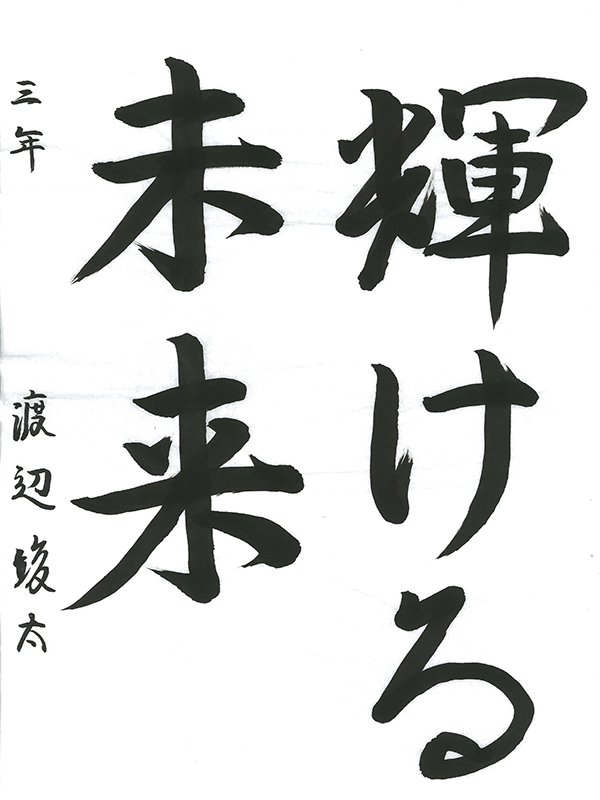 輝ける
未来
三年 渡辺竣太